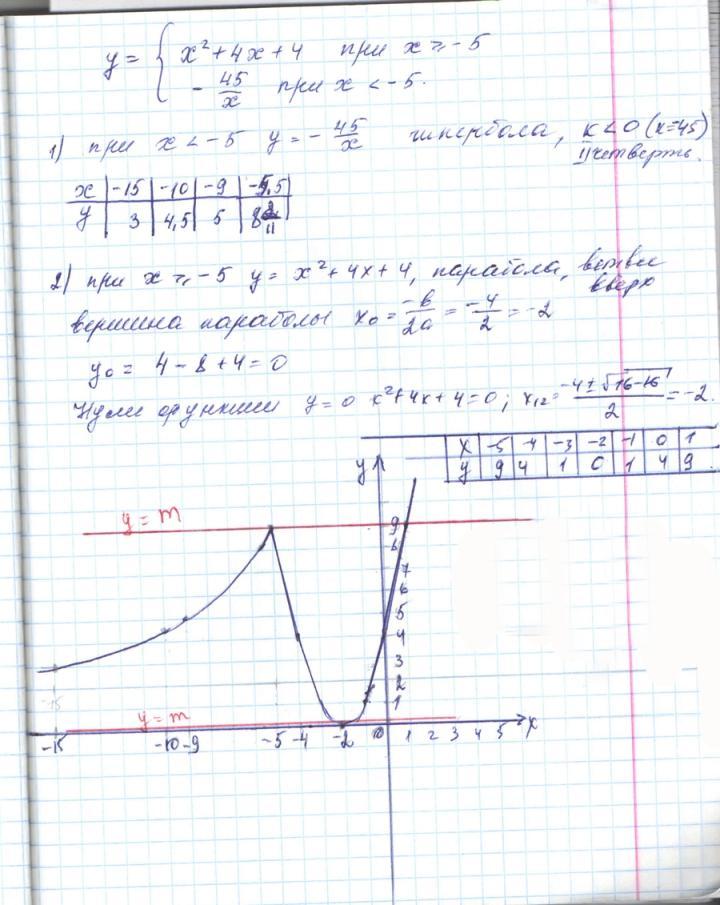 y = { x² + 4x + 4 при x ≥ -5
- 45/x при x < -5.
1) при x < -5 y = - 45/x гипербола, k<0 (k=45)
II четверть.
x | -15 | -10 | -9 | -5,5
y | 3 | 4,5 | 5 | 8 2/11
2) при x ≥ -5 y = x² + 4x + 4, парабола, ветви
вверх
вершина параболы x₀ = -b/2a = -4/2 = -2
y₀ = 4 - 8 + 4 = 0
Нули функции y = 0 x² + 4x + 4 = 0; x₁₂ = (-4 ± √16-16)/2 = -2.
x | -5 | -4 | -3 | -2 | -1 | 0 | 1
y | 9 | 4 | 1 | 0 | 1 | 4 | 9
y
y = m
9
8
7
6
5
4
3
2
1
-15
y = m
-15 -10 -9 -5 -4 -2 0 1 2 3 4 5 x